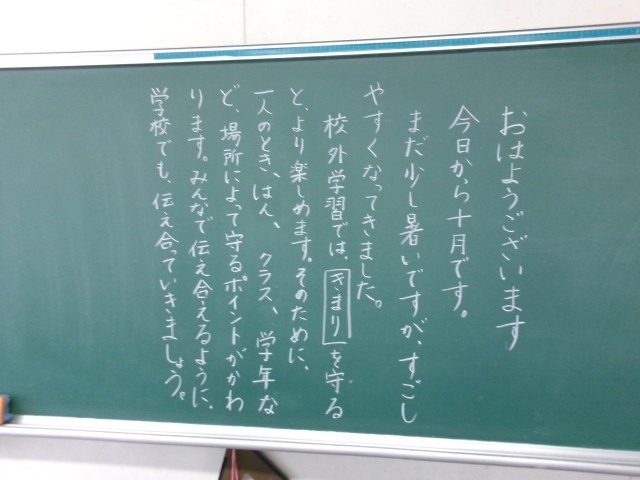 おはようございます
今日から十月です。
まだ少し暑いですが、すごし
やすくなってきました。
校外学習では、きまりを守る
と、より楽しめます。そのために、
一人のとき、はん、クラス、学年な
ど、場所によって守るポイントがかわ
ります。みんなで伝え合えるように、
学校でも、伝え合っていきましょう。